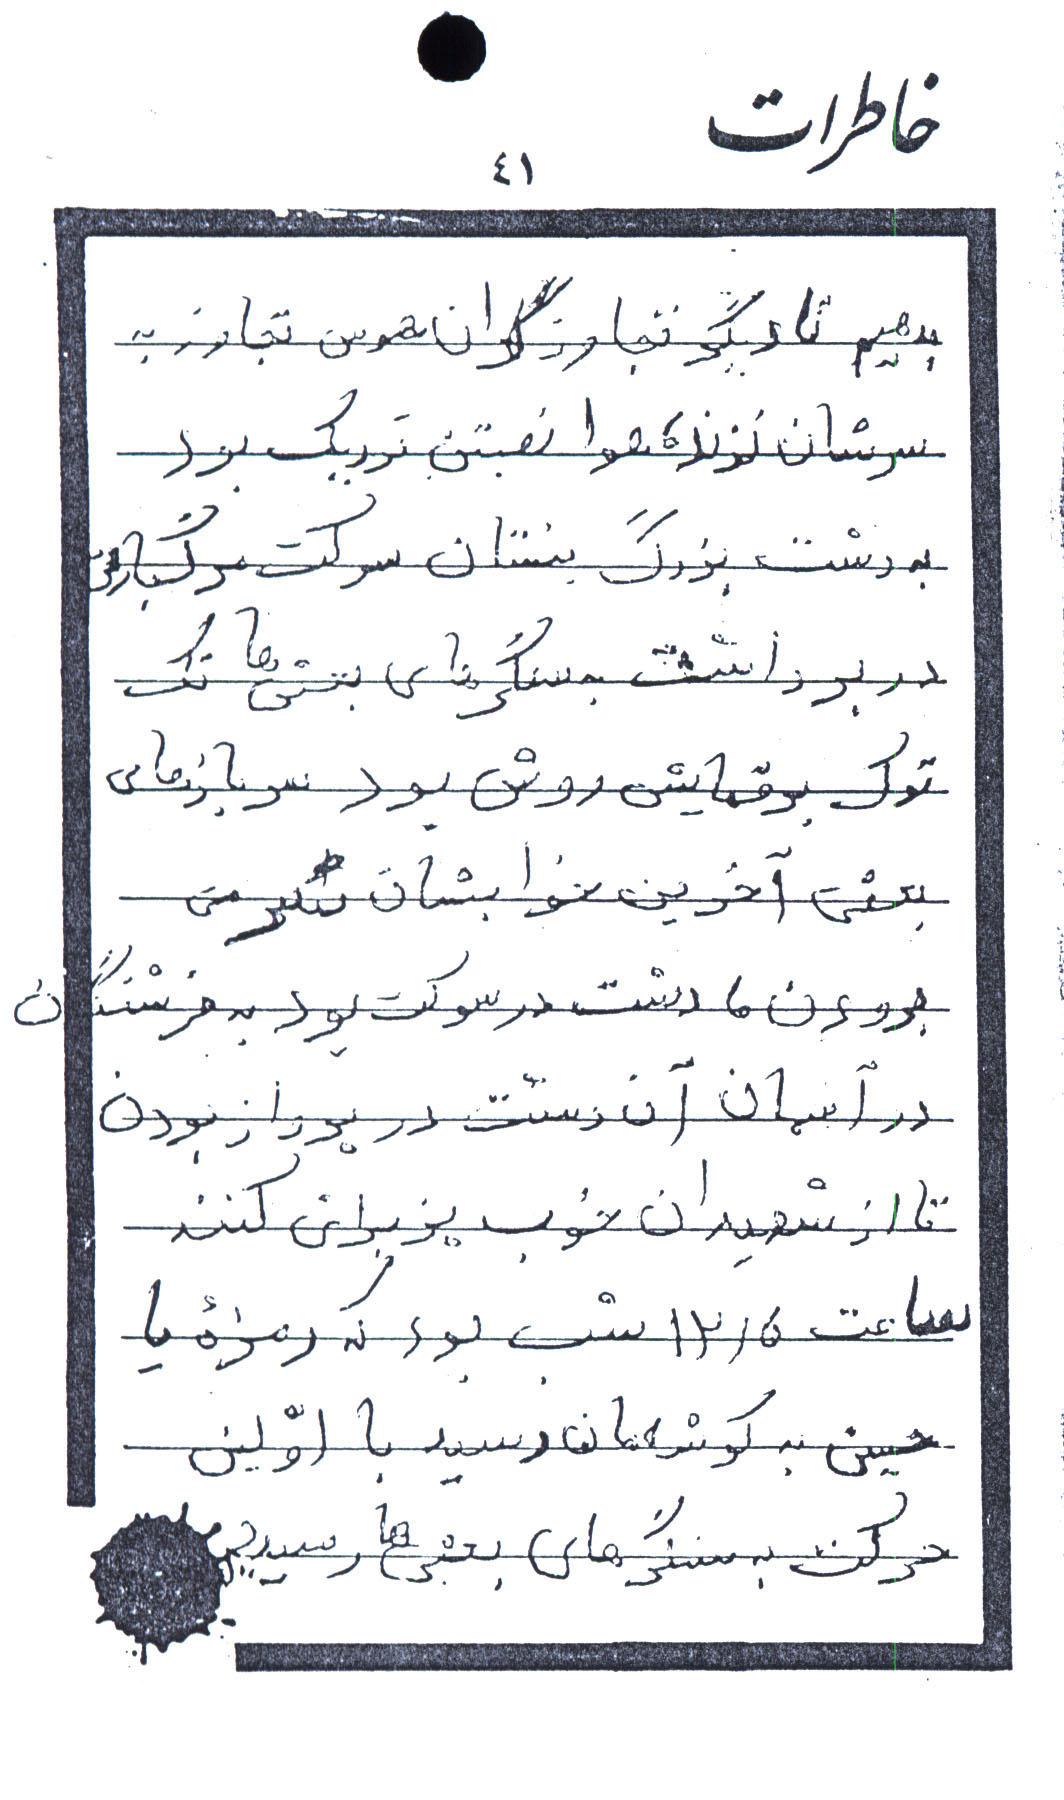 خاطرات
٤١
بدهیم تا دیگر تجاوزگران هوس تجاوز به
سرشان نزنده هوا نسبتن تریک بود
به دشت بزرگ بستان سوکت مرگباری
در برداشت به سنگرهای بعثی‌ها تک
توک برقهایش روشن بود سربازهای
بعثی آخرین خوابشان می
بردوندن ما دشت در سوکت بود به فرشتگان
در آسمان آن دشت در پرواز بودن
تا از شهیدان خوب پزیرای کنند
ساعت ۱۲/۵ شب بود که رمزهٔ یا
حسین به گوشمان رسید با اوّلین
حرکت به سنگرهای بعثی‌ها رسیدیم